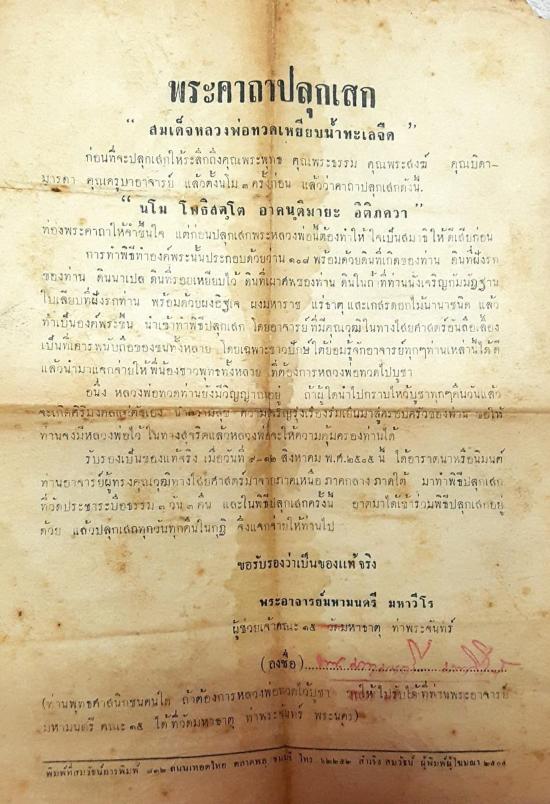 พระคาถาปลุกเสก
“ สมเด็จหลวงพ่อทวดเหยียบน้ำทะเลจืด ”
ก่อนที่จะปลุกเสกให้ระลึกถึงคุณพระพุทธ คุณพระธรรม คุณพระสงฆ์ คุณบิดา-
มารดา คุณครูบาอาจารย์ แล้วตั้งนโม ๓ ครั้งก่อน แล้วว่าคาถาปลุกเสกดังนี้.
“ นโม โพธิสตฺโต อาคนฺติมายะ อิติภควา ”
ท่องพระคาถาให้จำขึ้นใจ แต่ก่อนปลุกเสกพระหลวงพ่อนี้ต้องทำให้ใจเป็นสมาธิให้ดีเสียก่อน
การทำพิธีทำองค์พระนั้นประกอบด้วยว่าน ๑๐๘ พร้อมด้วยดินที่เกิดของท่าน ดินที่ฝังรก
ของท่าน ดินนาเปล ดินที่รอยเหยียบไว้ ดินที่เผาศพของท่าน ดินในถ้ำที่ท่านนั่งเจริญกัมมัฏฐาน
ใบเลียบที่ฝังรกท่าน พร้อมด้วยผงอิฐเจ ผงมหาราช แร่ธาตุ และเกสรดอกไม้นานาชนิด แล้ว
ทำเป็นองค์พระขึ้น นำเข้าทำพิธีปลุกเสก โดยอาจารย์ที่มีคุณวุฒิในทางไสยศาสตร์อันลือเลื่อง
เป็นที่เคารพนับถือของชนทั้งหลาย โดยเฉพาะชาวปักษ์ใต้ย่อมรู้จักอาจารย์ทุกๆท่านเหล่านี้ได้ดี
แล้วนำมาแจกจ่ายให้พี่น้องชาวพุทธทั้งหลาย ที่ต้องการหลวงพ่อทวดไปบูชา
อนึ่ง หลวงพ่อทวดท่านยังมีวิญญาณอยู่ ถ้าผู้ใดนำไปกราบไหว้บูชาทุกๆคืนวันแล้ว
จะเกิดศิริมงคลแก่ตัวเอง นำความสุข ความเจริญรุ่งเรืองร่มเย็นมาสู่ครอบครัวของท่าน ขอให้
ท่านจงมีหลวงพ่อไว้ ในทางสุจริตแล้วหลวงพ่อจะให้ความคุ้มครองท่านได้
รับรองเป็นของแท้จริง เมื่อวันที่ ๙-๑๒ สิงหาคม พ.ศ.๒๕๐๕ นี้ ได้อาราธนาหรือนิมนต์
ท่านอาจารย์ผู้ทรงคุณวุฒิทางไสยศาสตร์มาจากภาคเหนือ ภาคกลาง ภาคใต้ มาทำพิธีปลุกเสก
ที่วัดประสาธบุญญาวาส ๓ วัน ๓ คืน และในพิธีปลุกเสกครั้งนี้ อาตมาได้เข้าร่วมพิธีปลุกเสกอยู่
ด้วย แล้วปลุกเสกทุกวันทุกคืนในกุฏิ จึงแจกจ่ายให้ท่านไป
ขอรับรองว่าเป็นของแท้จริง
พระอาจารย์มหามนตรี มหาวีโร
ผู้ช่วยเจ้าคณะ ๑๕ วัดมหาธาตุ ท่าพระจันทร์
(ลงชื่อ)
(ท่านพุทธศาสนิกชนคนใด ถ้าต้องการหลวงพ่อทวดไว้บูชา ขอให้ไปรับได้ที่ท่านพระอาจารย์
มหามนตรี คณะ ๑๕ ได้ที่วัดมหาธาตุ ท่าพระจันทร์ พระนคร)
พิมพ์ที่สมรัชน์การพิมพ์ ๘๓๒ ถนนเทอดไทย ตลาดพลู ธนบุรี โทร ๖๒๒๕๒ สำเริง สมรัชน์ ผู้พิมพ์ผู้โฆษณา